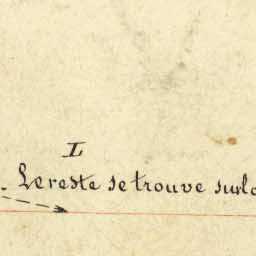 L
. Le reste se trouve sur la